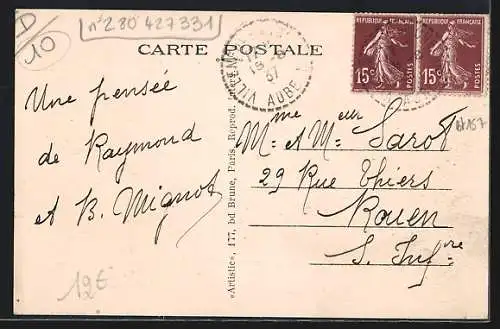 D
10
n° 280 427331
CARTE POSTALE
REPUBLIQUE FRANÇAISE
15c
POSTES
REPUBLIQUE FRANÇAISE
15c
POSTES
37
AUBE
Une pensée
de Raymond
et B. Mignot
12€
«Artistic», 177, bd Brune, Paris. Reprod.
Mme et Mr Sarot
29 Rue Thiers
Rouen
S. Infre